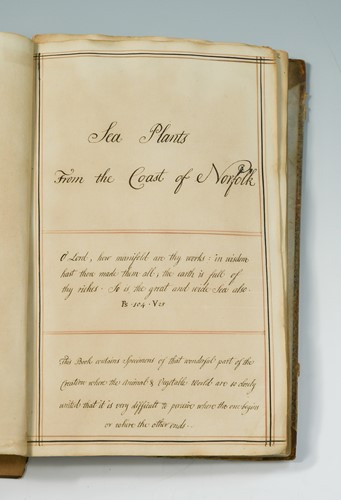 Sea Plants
From the Coast of Norfolk
O Lord, how manifold are thy works: in wisdom
hast thou made them all, the earth is full of
thy riches. So is the great and wide Sea also
Ps. 104. Ver
This Book contains Specimens of that wonderful part of the
Creation where the Animal & Vegetable World are so closely
united that it is very difficult to perceive where the one begins
or where the other ends..